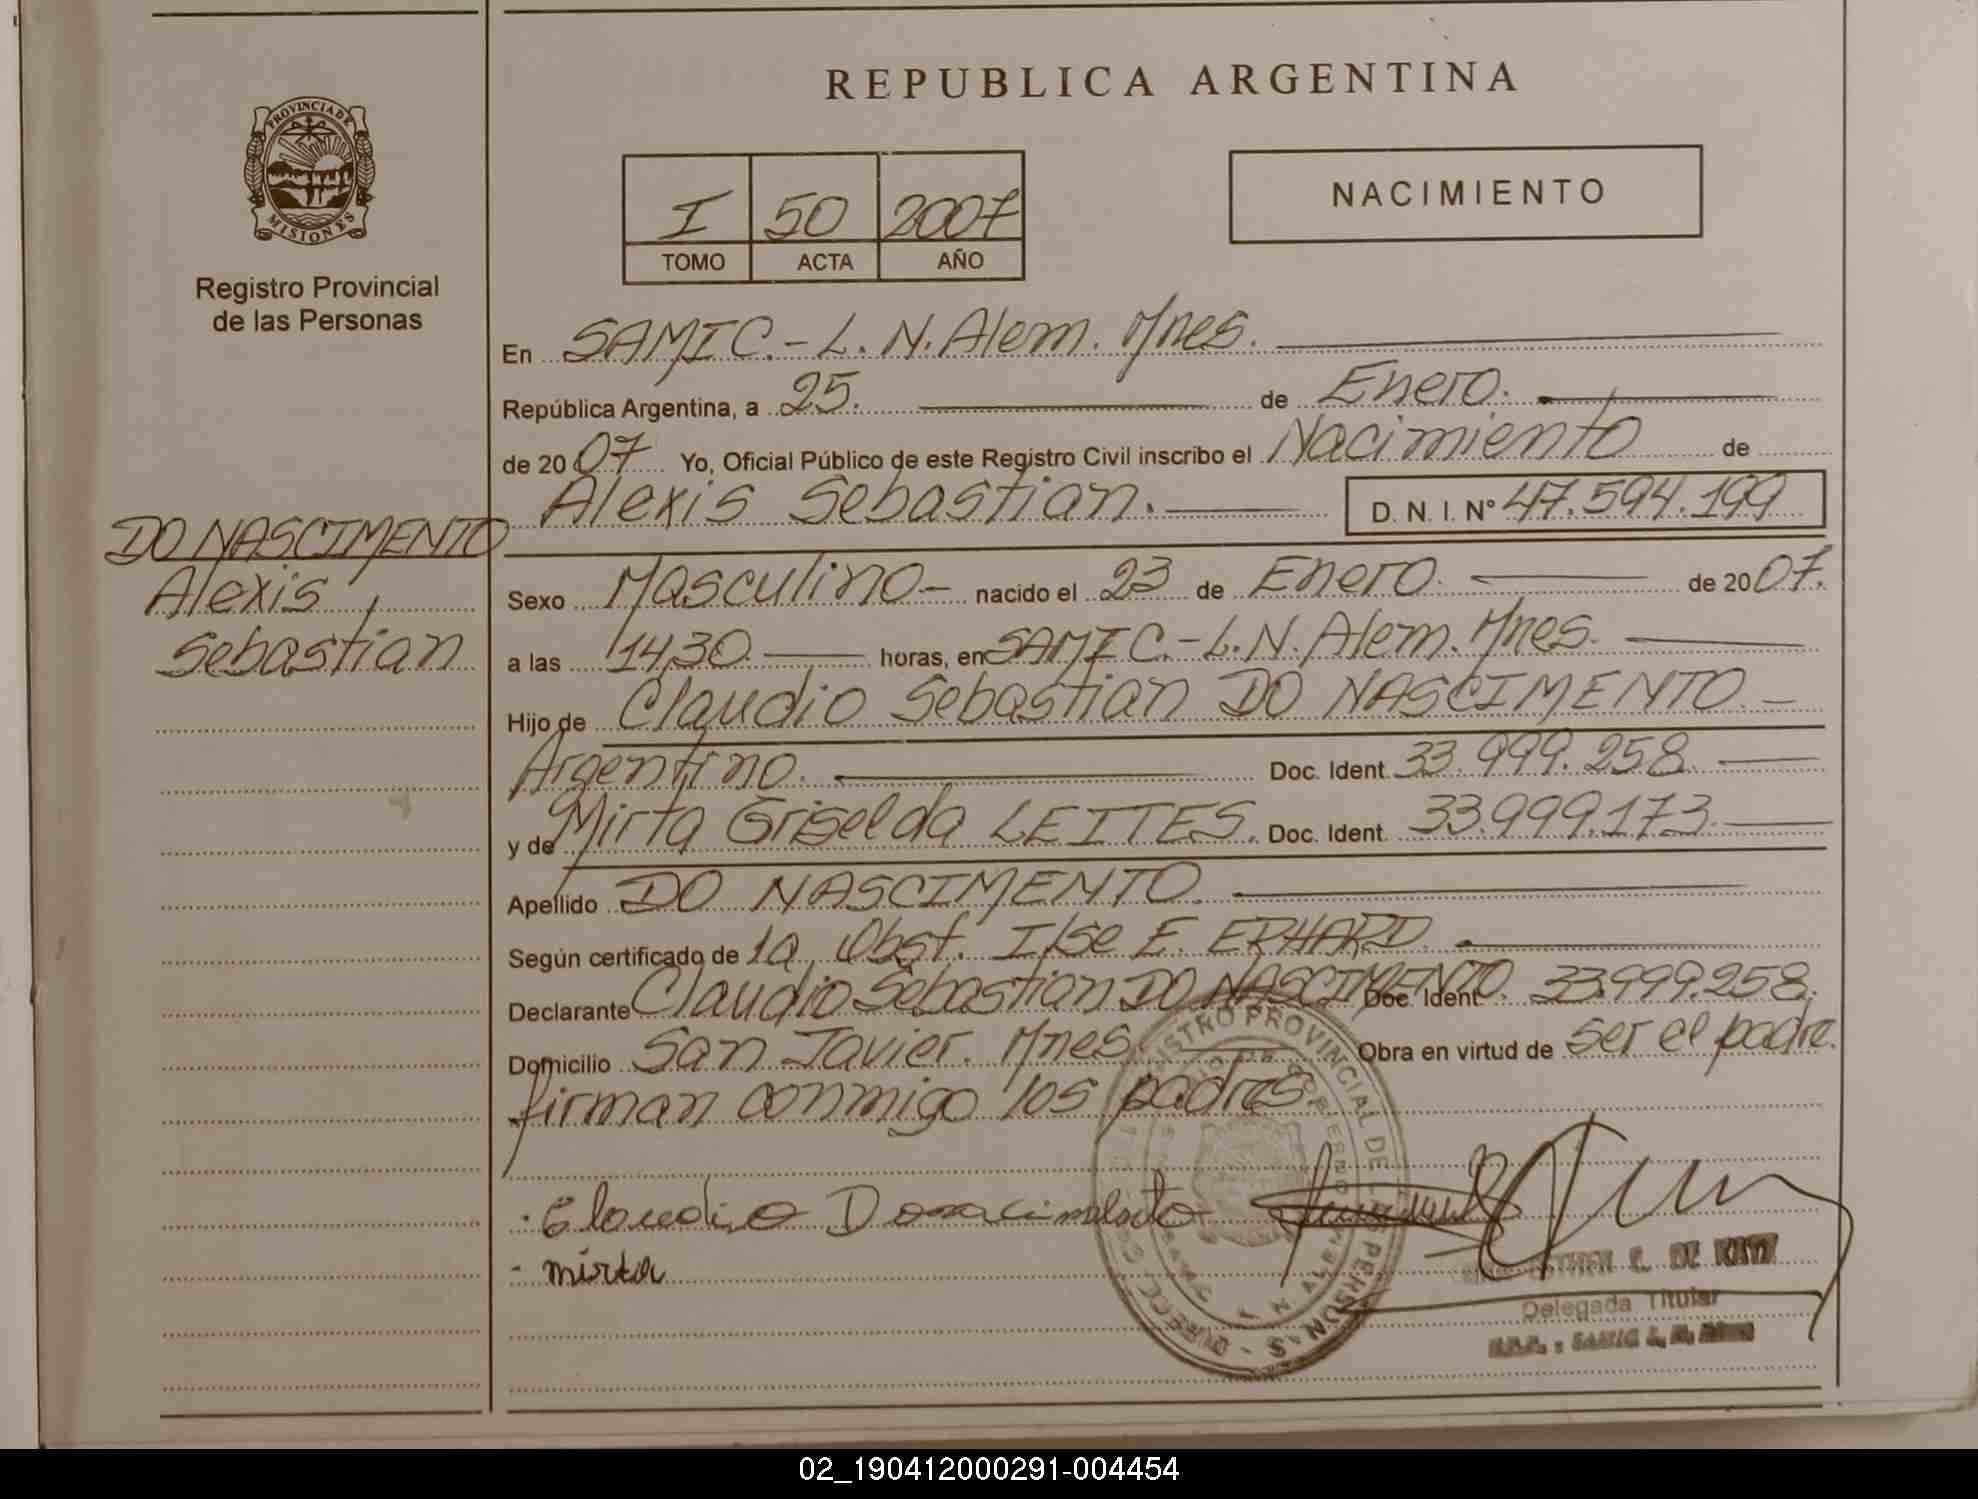 REPUBLICA ARGENTINA
PROVINCIA DE
MISIONES
Registro Provincial
de las Personas
I 50 2007
TOMO ACTA AÑO
NACIMIENTO
En SAMIC.- L. N. Alem. Mnes.
República Argentina, a 25. de Enero.
de 2007 Yo, Oficial Público de este Registro Civil inscribo el Nacimiento de
Alexis Sebastian. D. N. I. Nº 47.594.199
DO NASCIMENTO
Alexis
Sebastian
Sexo Masculino - nacido el 23 de Enero. de 2007.
a las 14,30. horas, en SAMIC.- L. N. Alem. Mnes.
Hijo de Claudio Sebastian DO NASCIMENTO. -
Argentino. Doc. Ident. 33.999.258.
y de Mirta Griselda LEITES. Doc. Ident. 33.999.173.
Apellido DO NASCIMENTO.
Según certificado de la Obst. Ilse E. ERHARD.
Declarante Claudio Sebastian DO NASCIMENTO. Doc. Ident. 33.999.258.
Domicilio San Javier. Mnes. Obra en virtud de ser el padre.
firman conmigo los padres
REGISTRO PROVINCIAL DE LAS PERSONAS
mirta
ESTHER C. DE
Delegada Titular
02_190412000291-004454